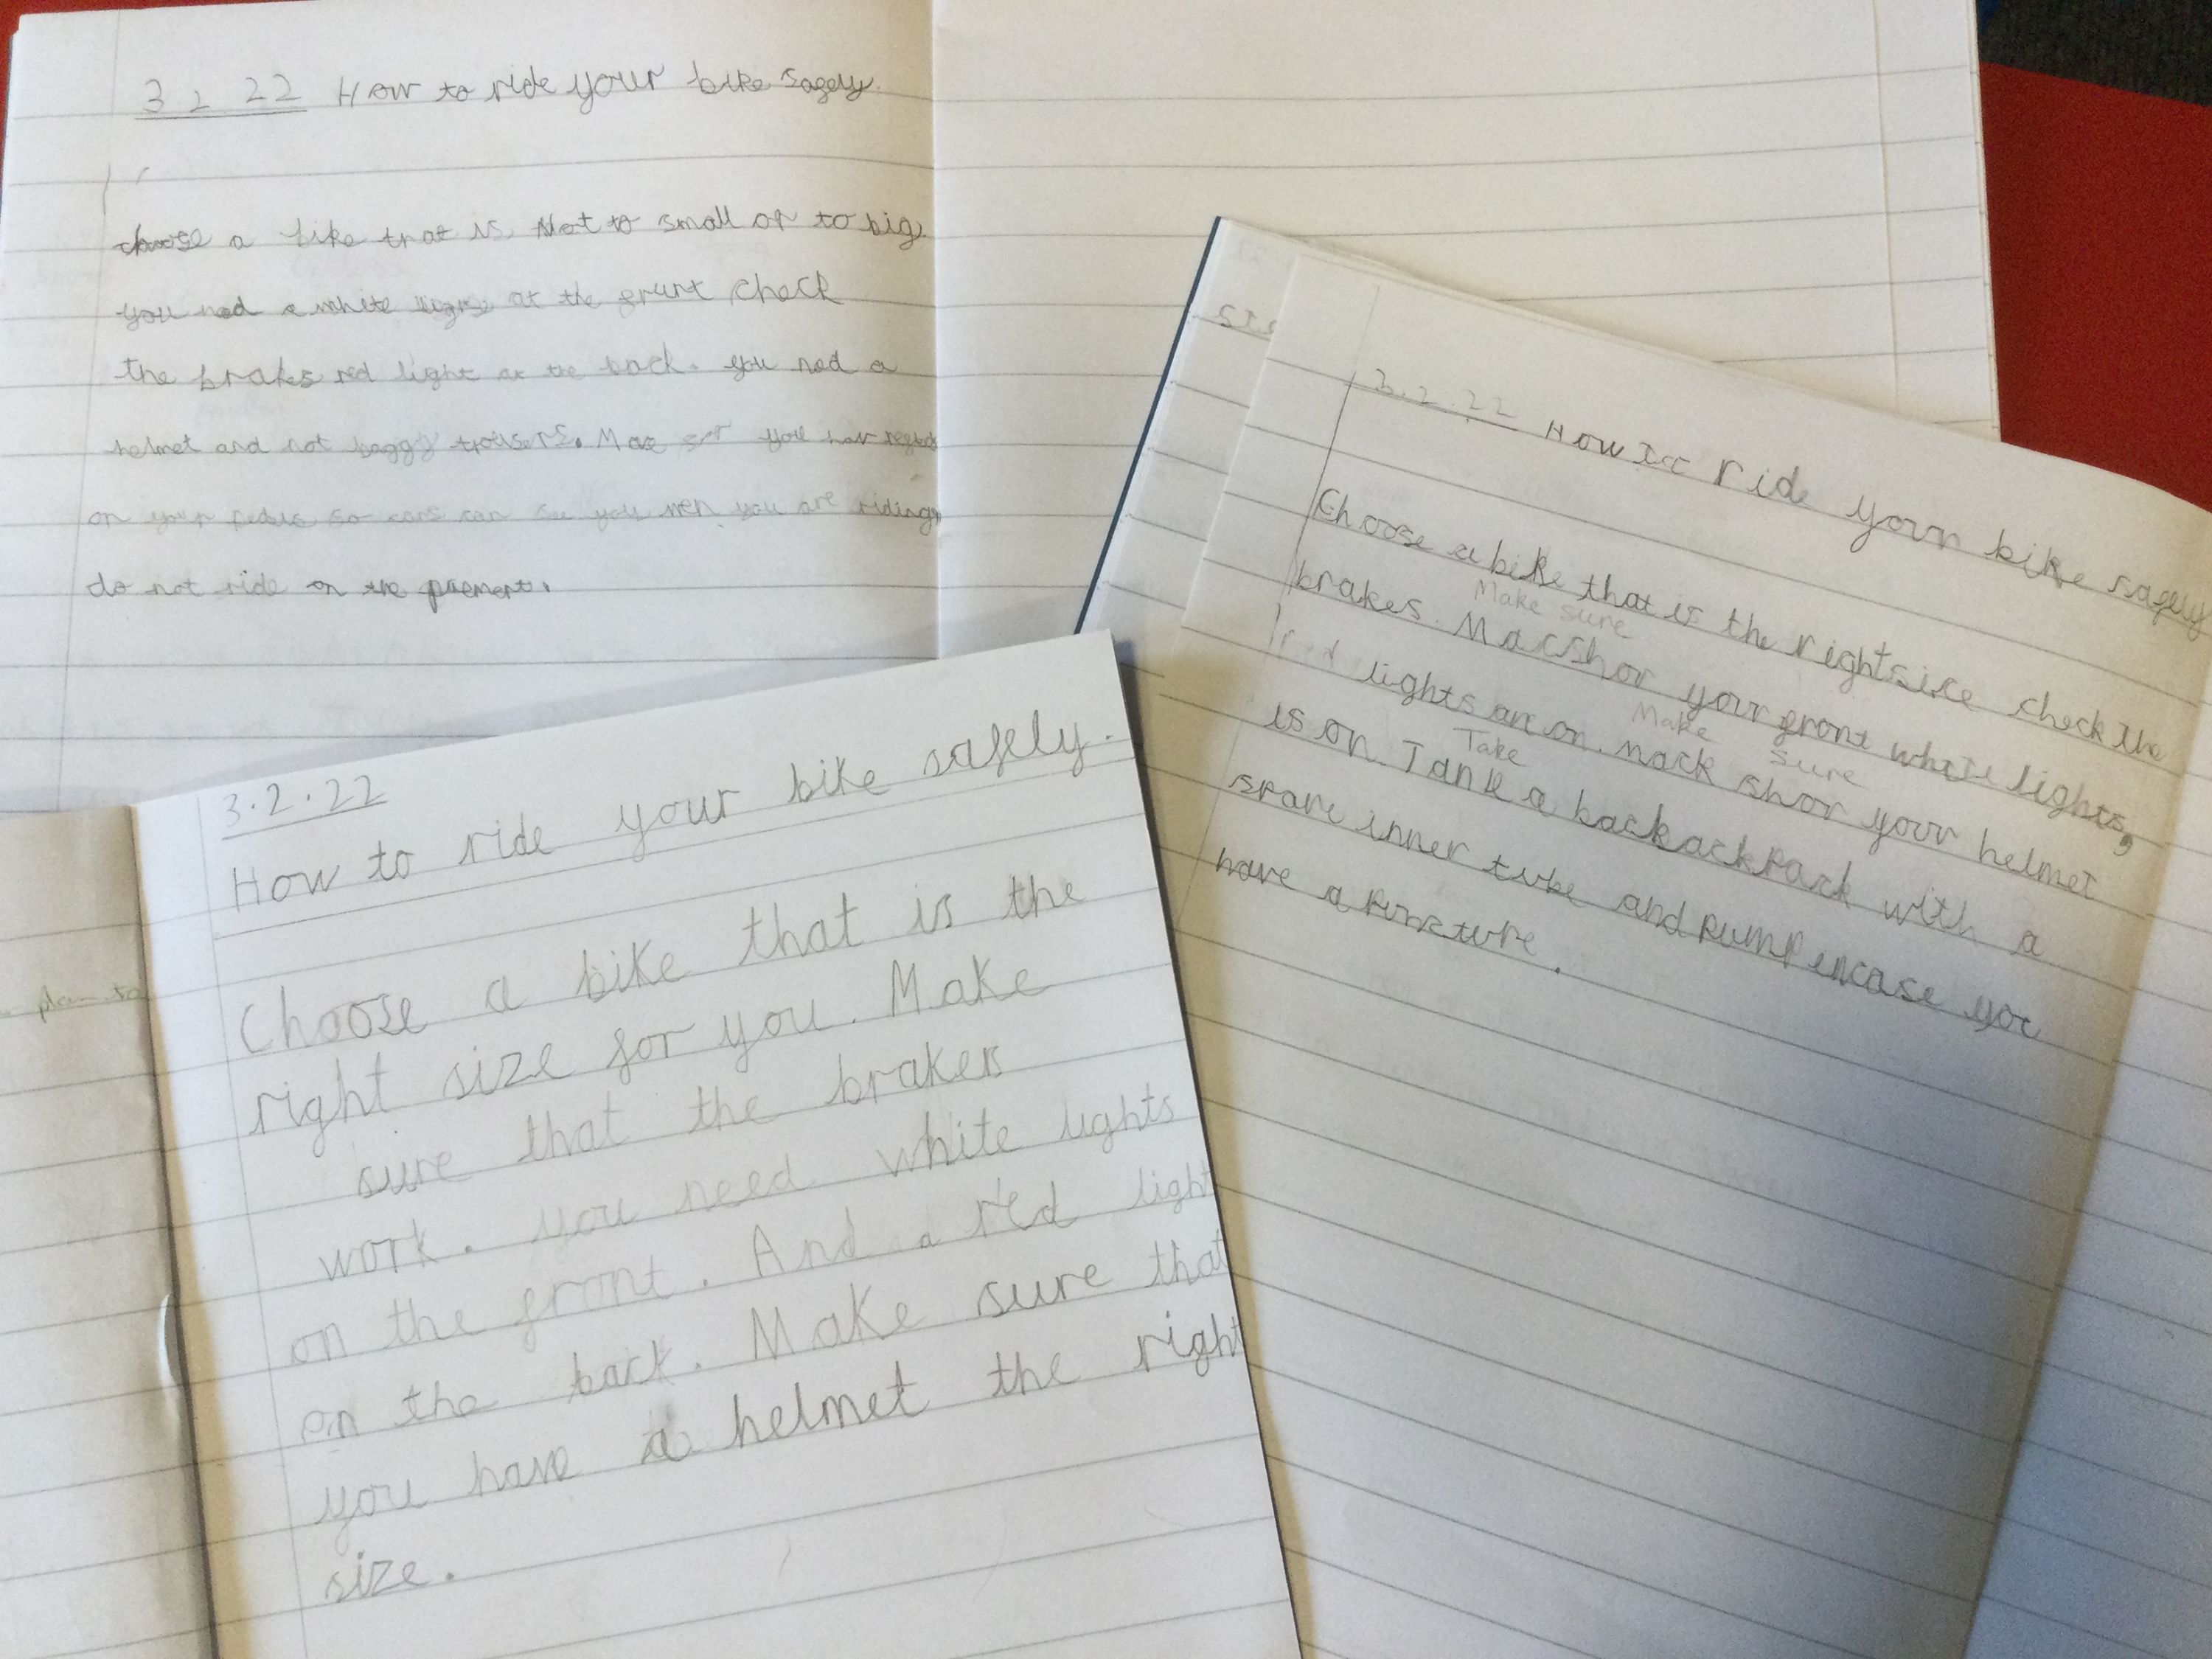 3 2 22 How to ride your bike sagely.
choose a bike that is. Not to small or to big.
you ned a white at the grunt check
the brakes red light at the back. you ned a
helmet and not baggy trousers. Mae you hav
on your so cars can see you wen you are riding
do not ride on the
3.2.22 How ride your bike sagely
Choose a bike that is the right sice check the
brakes. Macshor your gront white lights,
Make sure
red lights are on. mack shor your helmet
Make sure
is on Tank a backackpack with a
Take
spare inner tube and pump encase you
have a puncture.
3.2.22
How to ride your bike safely.
Choose a bike that is the
right size for you. Make
sure that the brakes
work. you need white lights
on the gront. And a red light
on the back. Make sure that
you have a helmet the right
size.
plan to